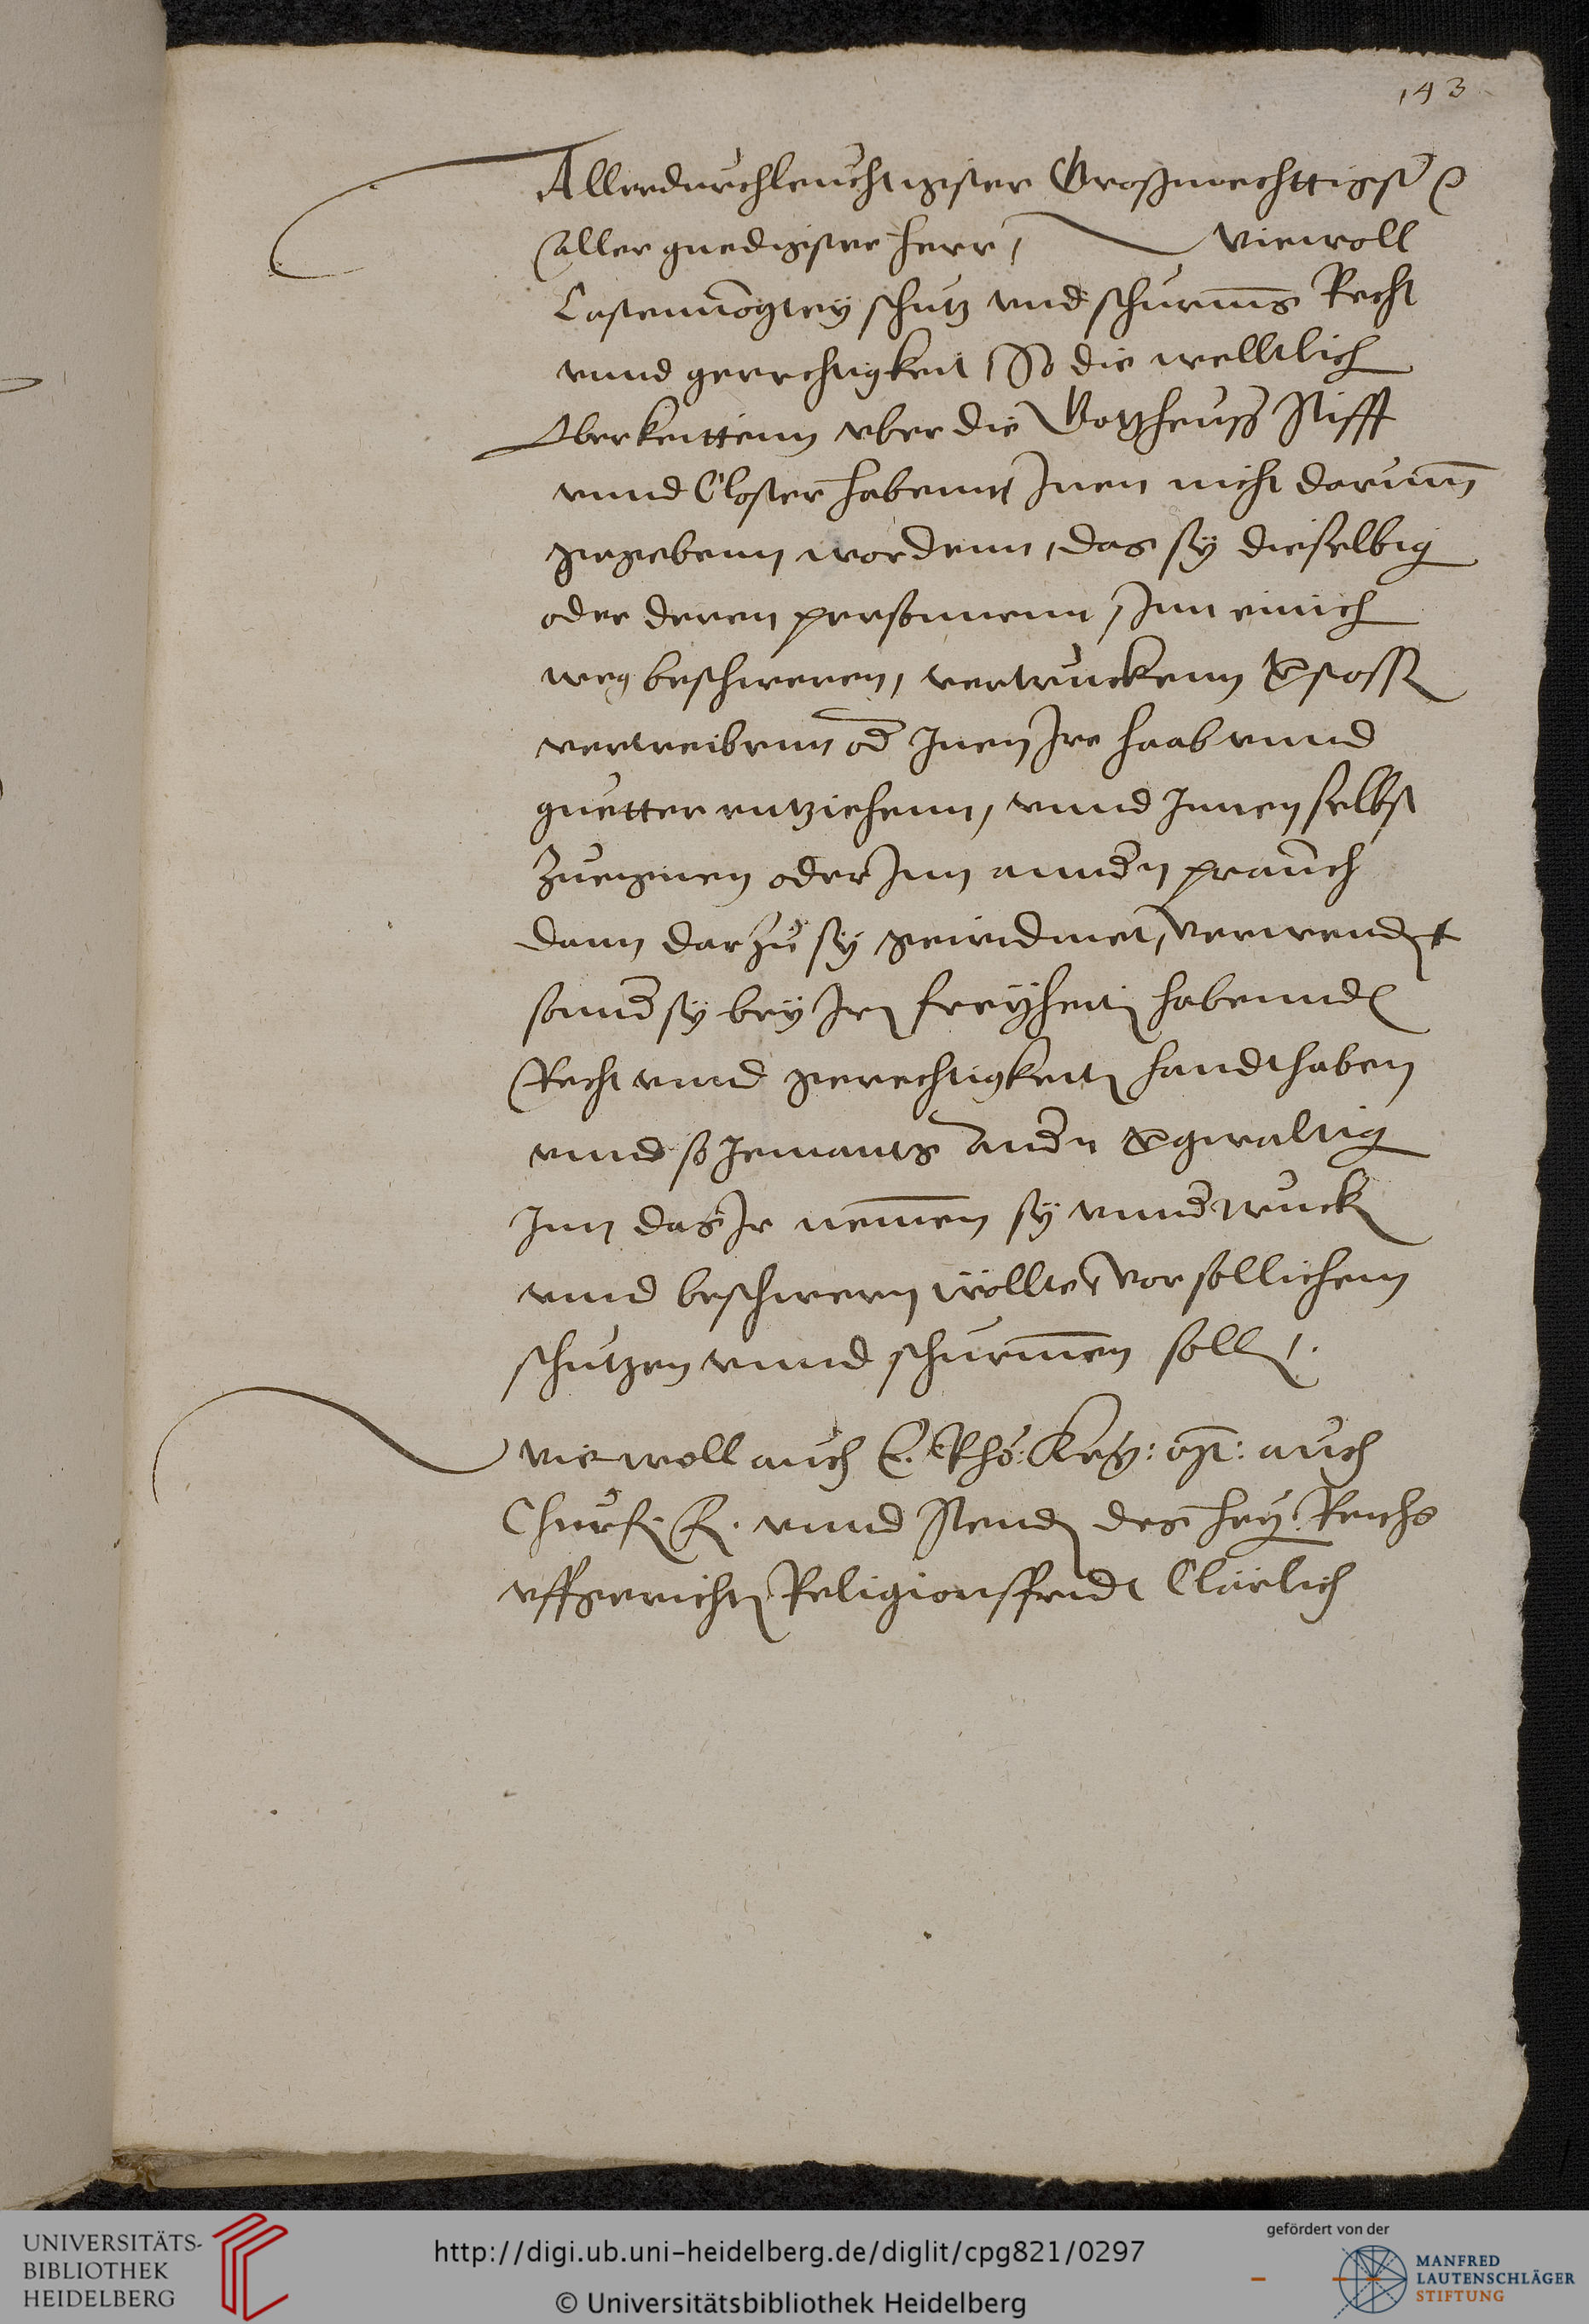 143
Allerdurchleuchtigister Großmechttigist
aller gnedigister herr, Wiewoll
Castenvogtey schutz vnd schurms Recht
vnnd gerechtigkeit, So die welltlich
Oberkeittenn vber die Gottheuß Stifft
vnnd Closter habennt Inen nicht darumb
gegebenn wordenn, das sy dieselbig
oder deren personnenn, Inn einich
weg beschweren, vertruckenn verstossen
vertreibenn od Inen Ire haab vnnd
guetter entziehenn, vnnd Innen selbst
Zueignen oder Inn annder prauch
dann darzu sy gewidmet, verwenden
sonnder sy bey Iren freyheiten habennden
Recht vnnd gerechtigkeiten handthaben
vnnd so Jemants annder vergwaltig
Inn das Ir nemmen sy vnndertrucken
vnnd beschweren wöllte, vor sollichem
schutzen vnnd schurmmen sollen.
Wiewoll auch E. Rho: Key: Mt: auch
Churf. F. vnnd Stende des hey: Reichs
vffgerichten Religionsfridt Clärlich
UNIVERSITÄTS-
BIBLIOTHEK
HEIDELBERG
http://digi.ub.uni-heidelberg.de/diglit/cpg821/0297
© Universitätsbibliothek Heidelberg
gefördert von der
MANFRED
LAUTENSCHLÄGER
STIFTUNG